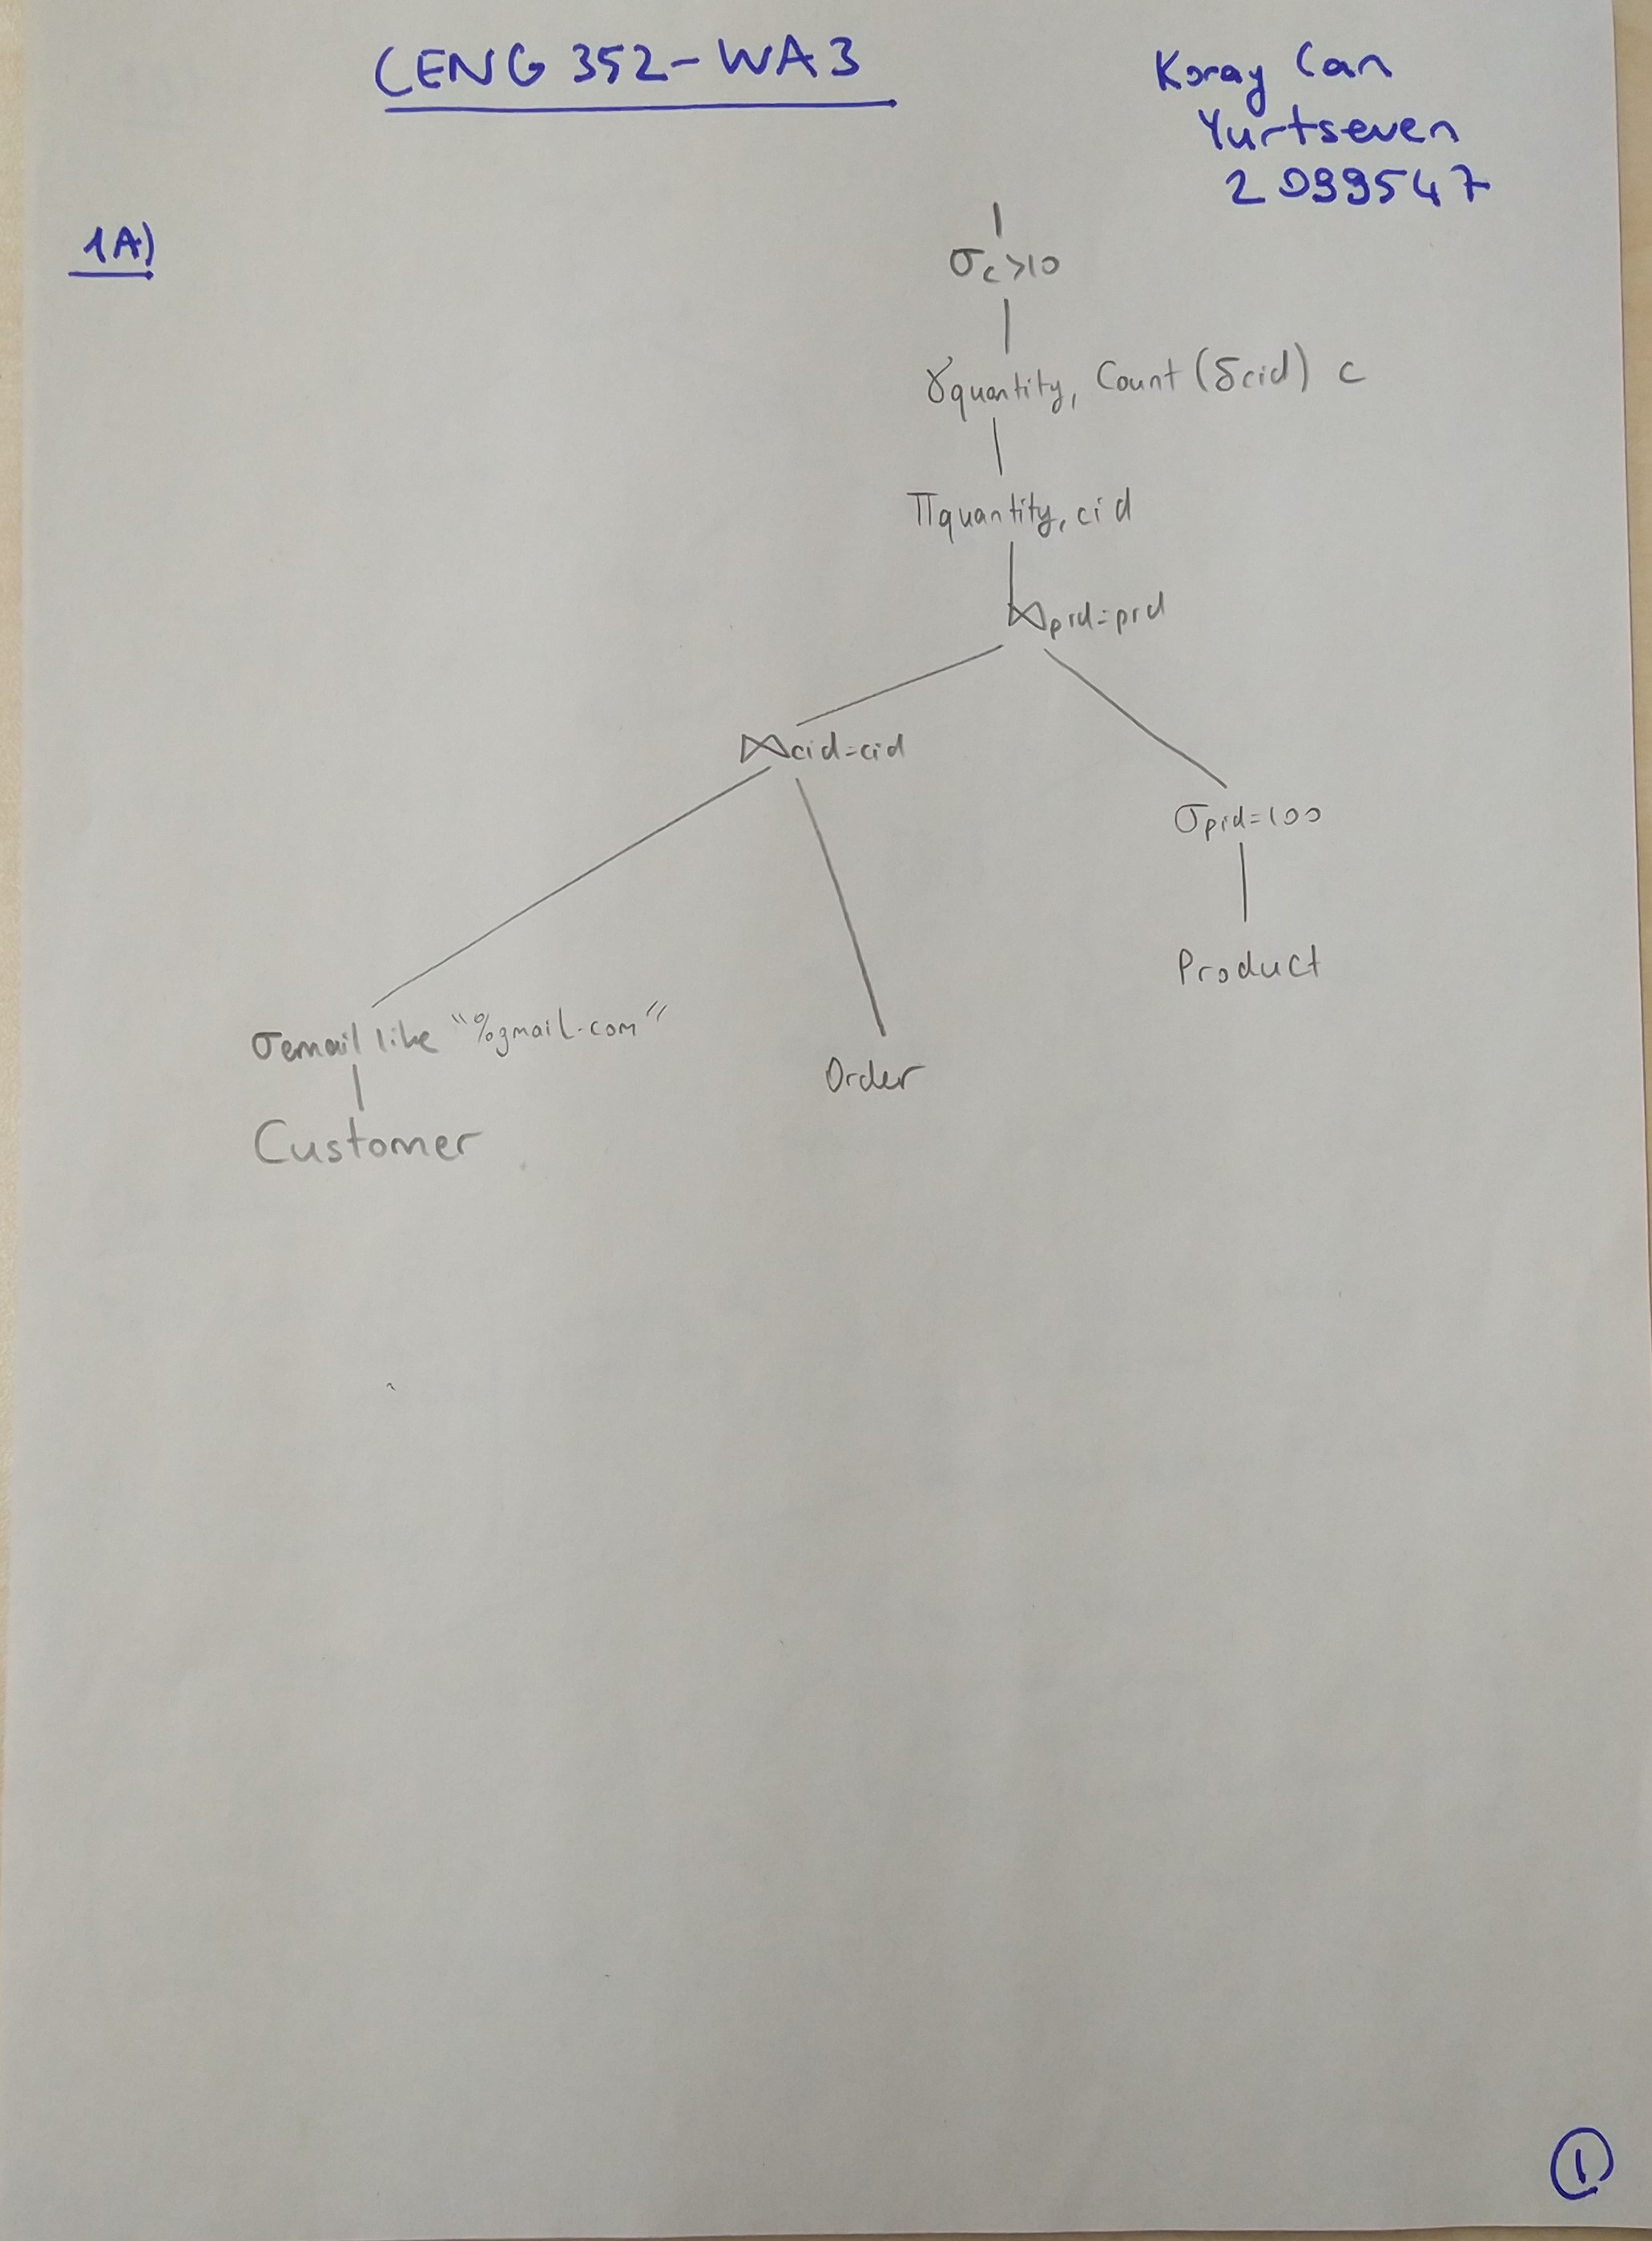 CENG 352-WA3
Koray Can
Yurtseven
2099547
1A)
σc>10
γquantity, Count (δcid) c
πquantity, cid
⋈pid=pid
⋈cid=cid
σpid=100
Product
σemail like "%gmail.com"
Order
Customer
1